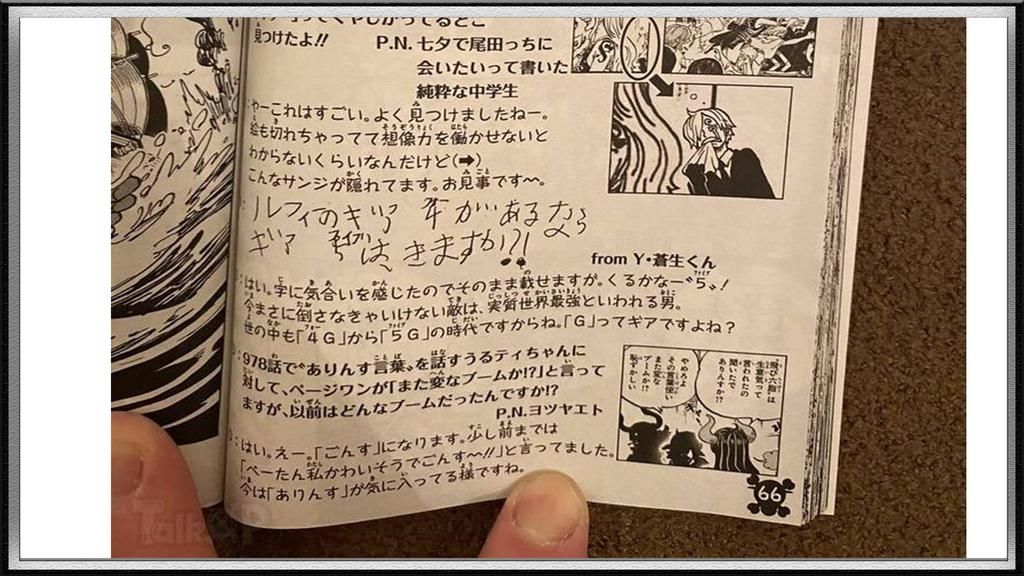 見つけたよ!!
P.N.七夕で尾田っちに
会いたいって書いた
純粋な中学生
やーこれはすごい。よく見つけましたねー。
絵も切れちゃってて想像力を働かせないと
わからないくらいなんだけど(➡)
こんなサンジが隠れてます。お見事です〜。
ルフィのギア 4があるなら
ギア 5はきますか?!
from Y・蒼生くん
はい。字に気合いを感じたのでそのまま載せますが。くるかなー"5"!
今まさに倒さなきゃいけない敵は、実質世界最強といわれる男。
世の中も「4G」から「5G」の時代ですからね。「G」ってギアですよね?
978話で"ありんす言葉"を話すうるティちゃんに
対して、ページワンが「また変なブームか!?」と言って
ますが、以前はどんなブームだったんですか!?
P.N.ヨツヤエト
はい。えー。「ごんす」になります。少し前までは
「ぺーたん私かわいそうでごんす〜!!」と言ってました。
今は「ありんす」が気に入ってる様ですね。
"飛び六胞"は
生意気って
言われたの
聞いたで
ありんすか!?
やめろよ
その言葉使い
また変な
ブームか!?
恥ずかしい
66